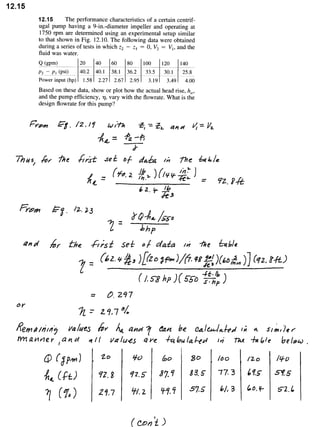 12.15
12.15 The performance characteristics of a certain centrif-
ugal pump having a 9-in.-diameter impeller and operating at
1750 rpm are determined using an experimental setup similar
to that shown in Fig. 12.10. The following data were obtained
during a series of tests in which z₂ − z₁ = 0, V₂ = V₁, and the
fluid was water.
Q (gpm) 20 40 60 80 100 120 140
p₂ − p₁ (psi) 40.2 40.1 38.1 36.2 33.5 30.1 25.8
Power input (hp) 1.58 2.27 2.67 2.95 3.19 3.49 4.00
Based on these data, show or plot how the actual head rise, hₐ,
and the pump efficiency, η, vary with the flowrate. What is the
design flowrate for this pump?
From Eq. 12.19 with z₁ = z₂ and V₁ = V₂
hₐ = p₂ − p₁ / γ
Thus, for the first set of data in the table
hₐ = (40.2 lb/in.²)(144 in.²/ft²) / 62.4 lb/ft³ = 92.8 ft
From Eq. 12.23
η = γQhₐ/550 / bhp
and for the first set of data in the table
η = (62.4 lb/ft³)[(20 gpm)/(7.48 gal/ft³)(60 s/min)](92.8 ft) / (1.58 hp)(550 ft·lb/s·hp)
= 0.297
or
η = 29.7 %
Remaining values for hₐ and η can be calculated in a similar
manner, and all values are tabulated in the table below.
Q (gpm) 20 40 60 80 100 120 140
hₐ (ft) 92.8 92.5 87.9 83.5 77.3 69.5 59.5
η (%) 29.7 41.2 49.9 57.5 61.3 60.4 52.6
(con't)